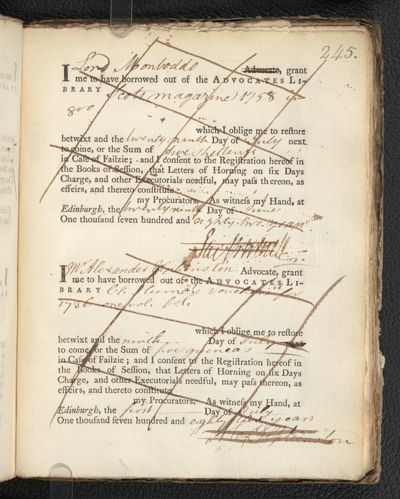 245.
I Lord Monboddo Advocate, grant
me to have borrowed out of the ADVOCATES LI-
BRARY Scots magazine 1758 in
8vo
which I oblige me to reſtore
betwixt and the twenty ninth Day of July next
to come, or the Sum of five shillings
in Caſe of Failzie; and I conſent to the Regiſtration hereof in
the Books of Seſſion, that Letters of Horning on ſix Days
Charge, and other Executorials needful, may paſs thereon, as
effeirs, and thereto conſtitute
my Procurators. As witneſs my Hand, at
Edinburgh, the twenty ninth Day of June
One thouſand ſeven hundred and eighty two years
I Mr Alexander Advocate, grant
me to have borrowed out of the ADVOCATES LI-
BRARY
1756
which I oblige me to reſtore
betwixt and the ninth Day of July
to come, or the Sum of five guineas
in Caſe of Failzie; and I conſent to the Regiſtration hereof in
the Books of Seſſion, that Letters of Horning on ſix Days
Charge, and other Executorials needful, may paſs thereon, as
effeirs, and thereto conſtitute
my Procurators. As witneſs my Hand, at
Edinburgh, the first Day of July
One thouſand ſeven hundred and eighty two years